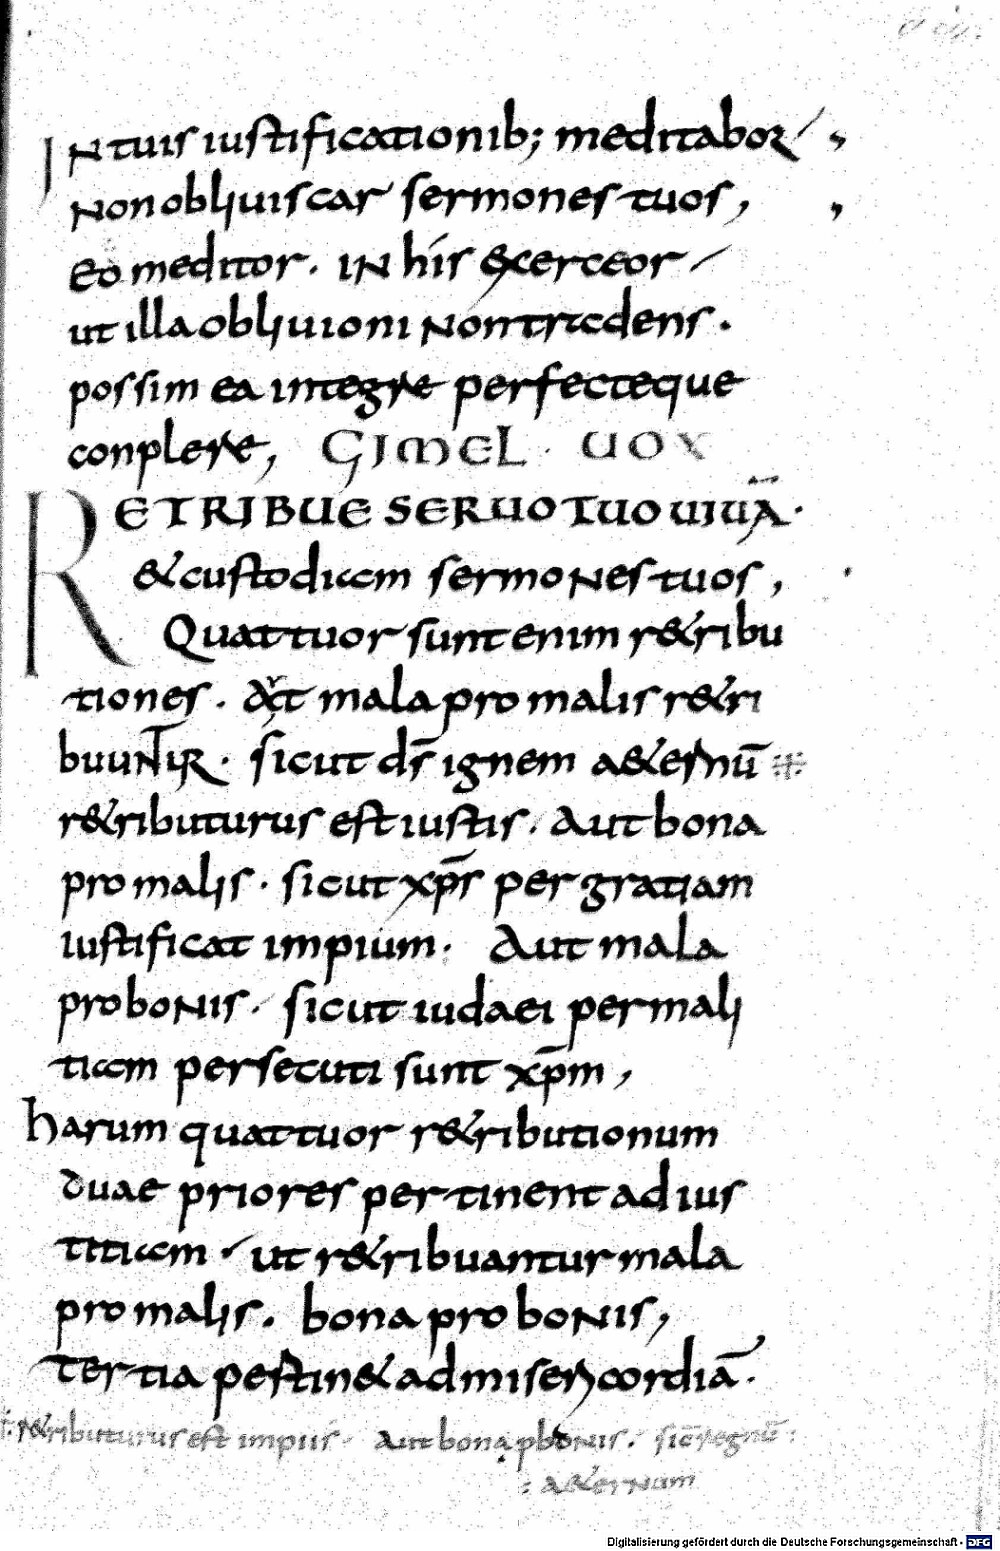 IN tuis iustificationib; meditabor
Non obliuiscar sermones tuos,
Eo meditor. IN his exerceor
ut illa obliuioni Non tradens.
possim ea integre perfecteque
conplere, GIMEL · UOX
RETRIBUE SERUO TUO UIUĀ·
& custodiam sermoNes tuos,
Quattuor sunt enim r&ribu
tiones. aut mala pro malis r&ri
buuNtur· sicut ds̄ ignem a&ernū
r&ributurus est iustis. Aut bona
pro malis· sicut xp̄s per gratiam
iustificat impium· Aut mala
pro boNis. sicut iudaei per mali
tiam persecuti sunt xp̄m,
harum quattuor r&ributionum
duae priores pertinent ad ius
titiam ut r&ribuantur mala
pro malis. bona pro boNis,
Tertia pestin& ad misericordiā·
r&ributurus est impiis. Aut bona p boNis. sic̄ regnū
a&erNum
Digitalisierung gefördert durch die Deutsche Forschungsgemeinschaft - DFG